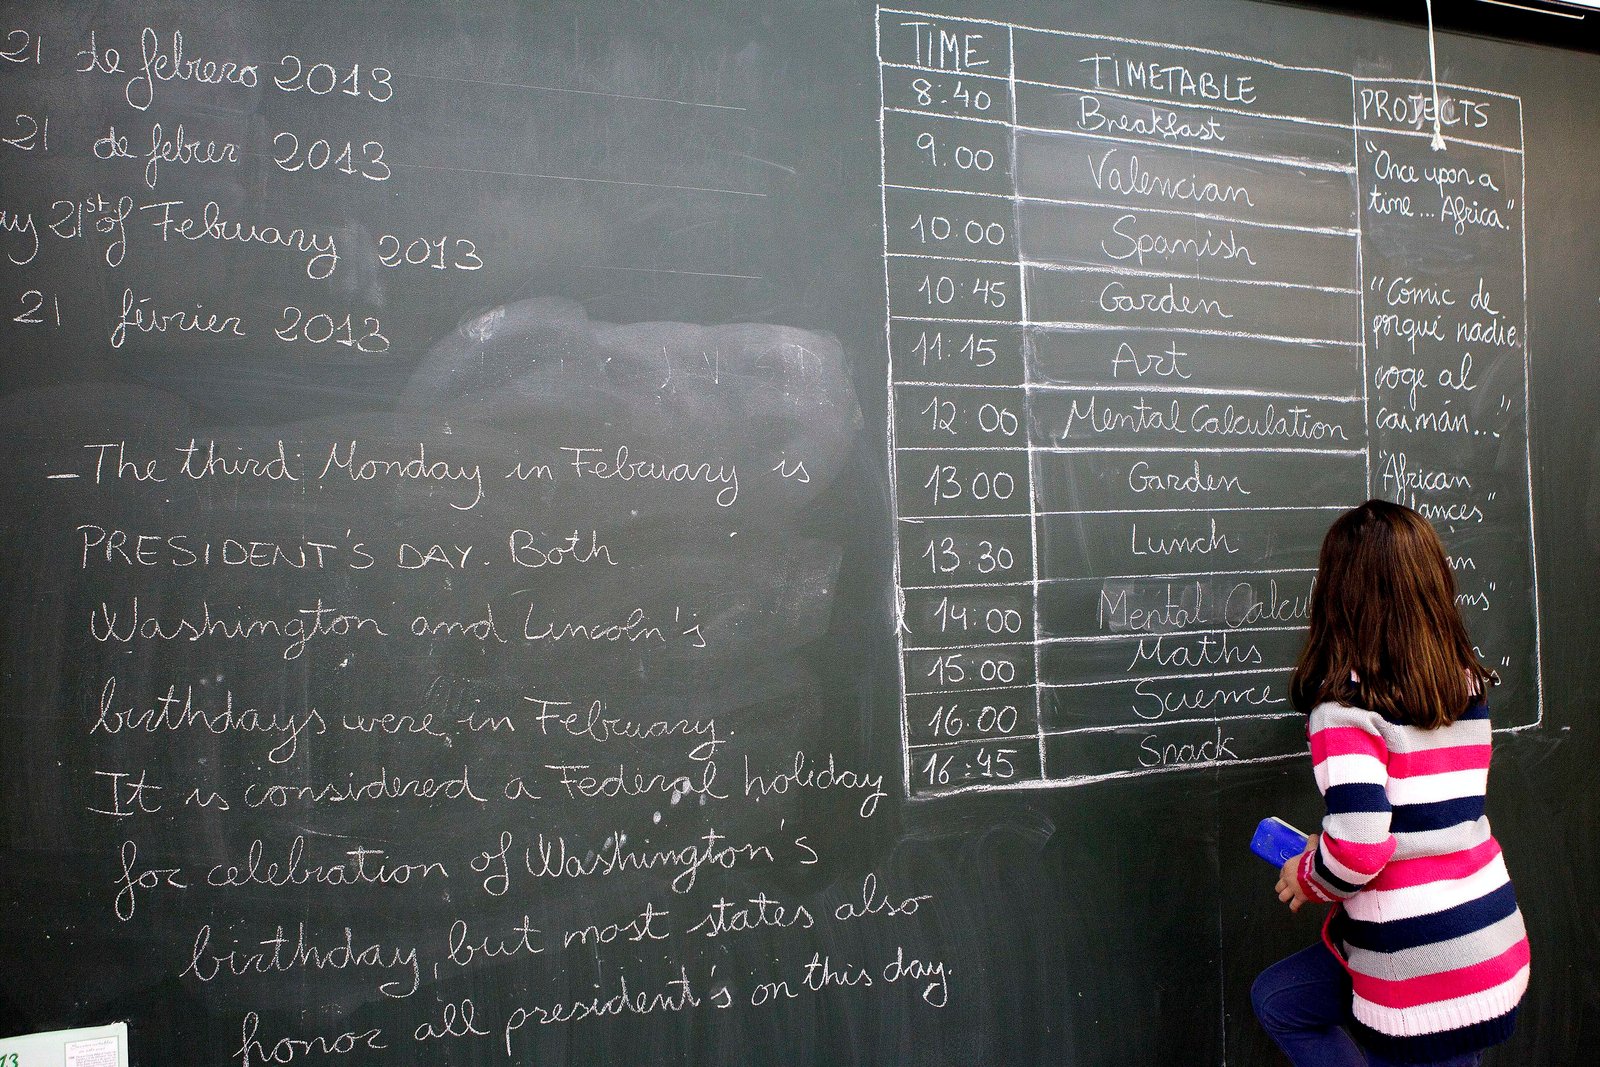 21 de febrero 2013
21 de febrer 2013
21st of February 2013
21 février 2013
– The third Monday in February is
PRESIDENT'S DAY. Both
Washington and Lincoln's
birthdays were in February.
It is considered a Federal holiday
for celebration of Washington's
birthday, but most states also
honor all president's on this day.
TIME TIMETABLE PROJECTS
8:40 Breakfast
9:00 Valencian
10:00 Spanish
10:45 Garden
11:15 Art
12:00 Mental Calculation
13 00 Garden
13:30 Lunch
14:00 Mental
15:00 Maths
16:00 Science
16:45 Snack
"Once upon a
time... Africa."
"Cómic de
porqué nadie
coge al
caimán..."
"African